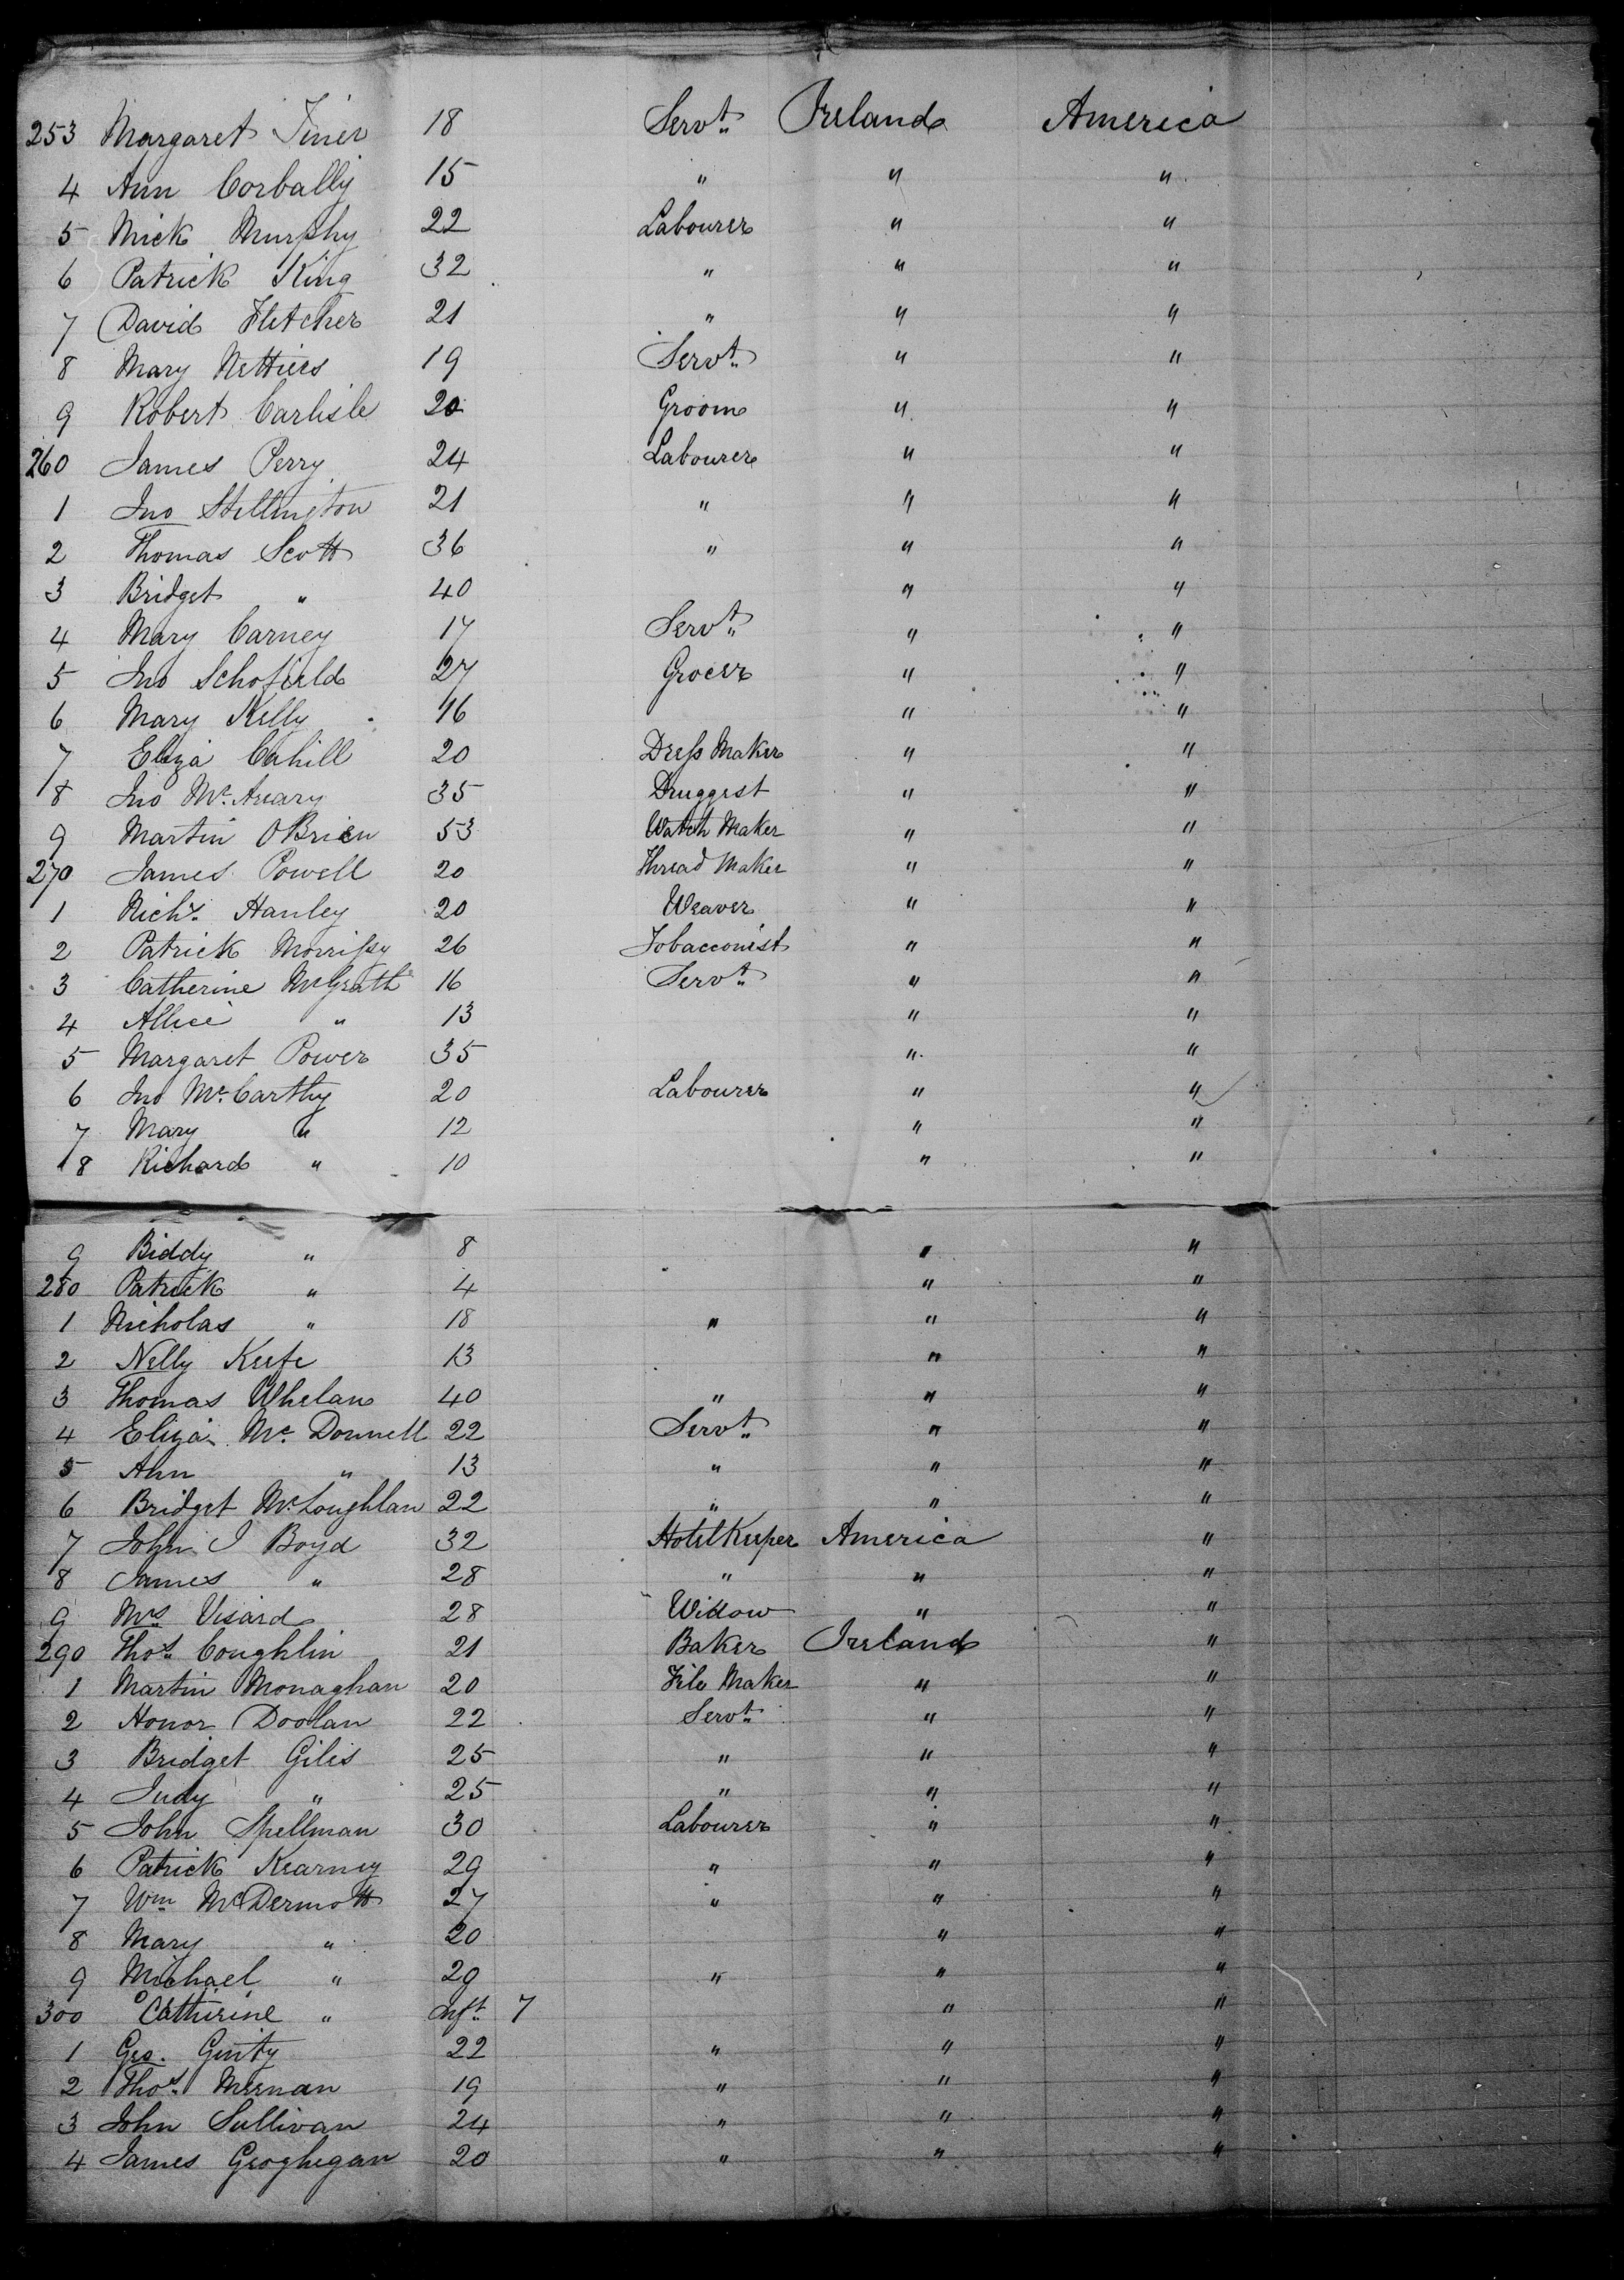 253 Margaret Finer 18 Servt. Ireland America
4 Ann Corbally 15 " " "
5 Mick Murphy 22 Labourer " "
6 Patrick King 32 " " "
7 David Fletcher 21 " " "
8 Mary 19 Servt. " "
9 Robert Carlisle 20 Groom " "
260 James Perry 24 Labourer " "
1 Jno Stillington 21 " " "
2 Thomas Scott 36 " " "
3 Bridget " 40 " "
4 Mary Carney 17 Servt. " "
5 Jno Schofield 27 Grocer " "
6 Mary Kelly 16 " "
7 Eliza Cahill 20 Dress Maker " "
8 Jno Mc. 35 Druggist " "
9 Martin OBrien 53 Watch Maker " "
270 James Powell 20 Thread Maker " "
1 Hanley 20 Weaver " "
2 Patrick Morrissy 26 Tobacconist " "
3 Catherine McGrath 16 Servt. " "
4 Allice " 13 " "
5 Margaret Power 35 " "
6 Jno Mc.Carthy 20 Labourer " "
7 Mary " 12 " "
8 Richard " 10 " "
9 Biddy " 8 " "
280 Patrick " 4 " "
1 Nicholas " 18 " " "
2 Nelly Keefe 13 " "
3 Thomas Whelan 40 " " "
4 Eliza Mc. Donnell 22 Servt. " "
5 Ann " 13 " " "
6 Bridget Mc.Loughlan 22 " " "
7 John J Boyd 32 Hotel Keeper America "
8 James " 28 " " "
9 Mrs. Visard 28 Widow " "
290 Thos. Coughlin 21 Baker Ireland "
1 Martin Monaghan 20 File Maker " "
2 Honor Doolan 22 Servt. " "
3 Bridget Gilis 25 " " "
4 Judy " 25 " " "
5 John Spellman 30 Labourer " "
6 Patrick Kearney 29 " " "
7 Wm. McDermott 27 " " "
8 Mary " 20 " "
9 Michael " 29 " " "
300 Catherine " Inft. 7 " "
1 Geo. Ginty 22 " " "
2 Thos. Meenan 19 " " "
3 John Sullivan 24 " " "
4 James Geoghegan 20 " " "